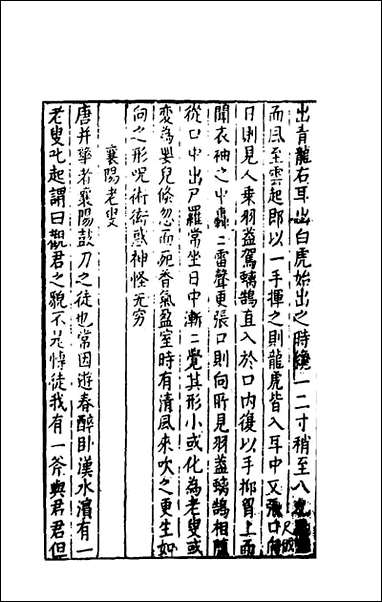 出青龍右耳出白虎始出之時纔一二寸稍至八尺
而風至雲起即以一手揮之則龍虎皆入耳中又張口向
日則見人乗羽葢駕螭鵠直入於口內復以手抑胷上而
聞衣袖之中轟二雷聲更張口則向所見羽葢螭鵠相隨
從口中出尸羅常坐日中漸二覺其形小或化為老叟或
變為嬰兒倐忽而死香氣盈室時有清風來吹之更生如
向之形呪術衒惑神怪无穷
襄陽老叟
唐并華者襄陽鼓刀之徒也常因遊春醉卧漢水濱有一
老叟叱起謂曰觀君之貌不是博徒我有一斧與君君但